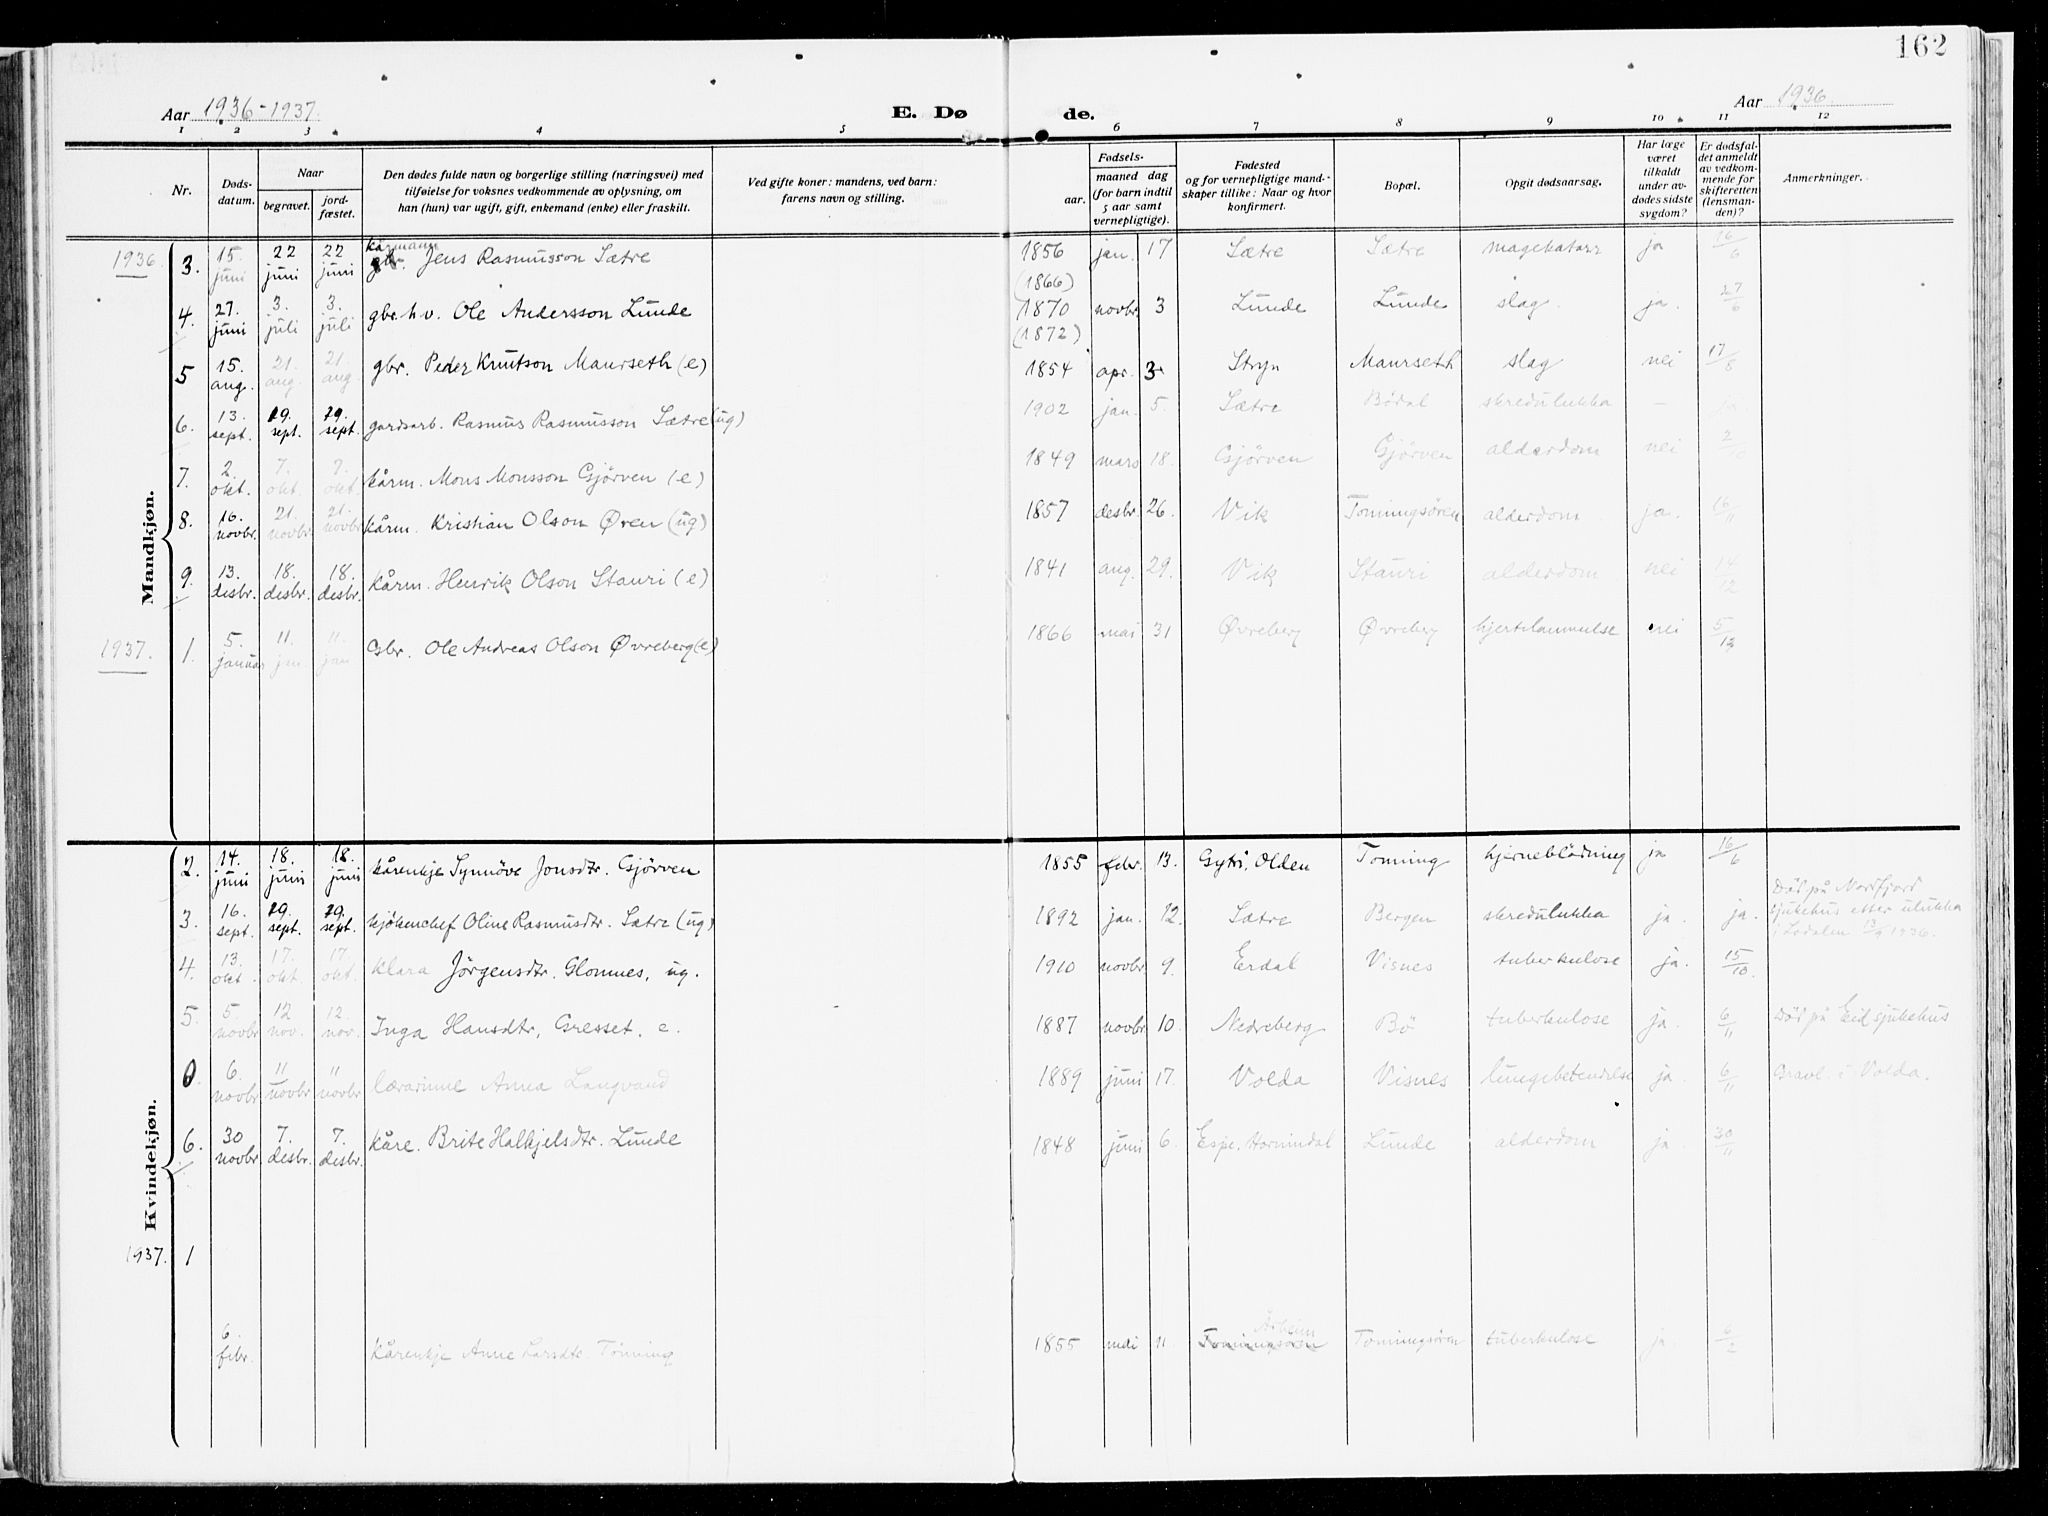 162
Aar 1936-1937. E. Dø de. Aar 1936.
1 2 3 4 5 6 7 8 9 10 11 12
Nr.
Døds-
datum.
Naar
begravet.
jord-
fæstet.
Den dødes fulde navn og borgerlige stilling (næringsvei) med
tilføielse for voksnes vedkommende av oplysning, om
han (hun) var ugift, gift, enkemand (enke) eller fraskilt.
Ved gifte koner: mandens, ved barn:
farens navn og stilling.
Fødsels-
aar.
maaned dag
(for barn indtil
5 aar samt
vernepligtige).
Fødested
og for vernepligtige mand-
skaper tillike: Naar og hvor
konfirmert.
Bopæl.
Opgit dødsaarsag.
Har læge
været
tilkaldt
under av-
dødes sidste
sygdom?
Er dødsfal-
det anmeldt
av vedkom-
mende for
skifteretten
(lensman-
den)?
Anmerkninger.
Mandkjøn.
kårmann
1936. 3. 15. juni 22 juni 22 juni Jens Rasmusson Sætre 1856 (1866) jan. 17 Sætre Sætre magekatarr ja 16/6
4. 27. juni 3. juli 3. juli gbr. h.v. Ole Andersson Lunde 1870 (1872) novbr. 3 Lunde Lunde slag. ja. 27/6
5 15. aug. 21. aug. 21. aug gbr. Peder Knutson Maurseth (e) 1854 apr. 3 Stryn Maurseth slag nei 17/8
6. 13. sept. 29. sept. 29. sept. gardsarb. Rasmus Rasmusson Sætre (ug) 1902 jan. 5. Sætre Bødal skredulukka —
7. 2. okt. 7. okt. 7. okt. kårm. Mons Monsson Gjørven (e) 1849 mars 18. Gjørven Gjørven alderdom nei 2/10
8. 16. novbr. 21. novbr. 21. novbr kårm. Kristian Olson Øren (ug) 1857 desbr. 26. Vik Tonningsören alderdom ja. 16/11
9. 13. desbr. 18. desbr. 18. desbr. kårm. Henrik Olson Stauri (e) 1841 aug. 29. Vik Stauri alderdom nei 14/12
1937. 1. 5. januar 11. jan 11. jan Gbr. Ole Andreas Olson Øvreberg (e) 1866 mai 31 Øvreberg Øvreberg hjertelammelse nei
Kvindekjøn.
2. 14. juni 18. juni 18. juni kårenkje Synnöve Jonsdtr. Gjørven 1855 febr. 13. Gytri, Olden Tonning hjerneblödning ja 16/6
3. 16. sept. 29. sept. 29. sept. kjökenchef Oline Rasmusdtr. Sætre (ug) 1892 jan. 12. Sætre Bergen skredulukka ja. ja. Död på Nordfjord
sjukehus etter ulukka
i Lodalen 13/9 1936.
4. 13. okt. 17. okt. 17. okt. Klara Jörgensdtr. Glomnes, ug. 1910 novbr 9. Erdal Visnes tuberkulose ja. 15/10.
5. 5. novbr 12 nov. 12. nov. Inga Hansdtr, Gresset, e. 1887 novbr 10. Nedreberg Bö tuberkulose ja. 6/11 Död på Eid sjukehus
0. 6. novbr 11 novbr 11 novbr lærarinne Anna Langvand 1889 juni 17. Volda Visnes lungebetendelse ja. 6/11 Gravl. i Volda.
6. 30 novbr 7. desbr. 7. desbr. kåre. Brite Halkjelsdtr. Lunde 1848 juni 6. Espe, Hornindal Lunde alderdom ja. 30/11
1937. 1
6. febr. kårenkje Anne Larsdtr. Tonning 1855 mai 11. Årheim Tonningsören Tonningsören tuberkulose ja. 6/2